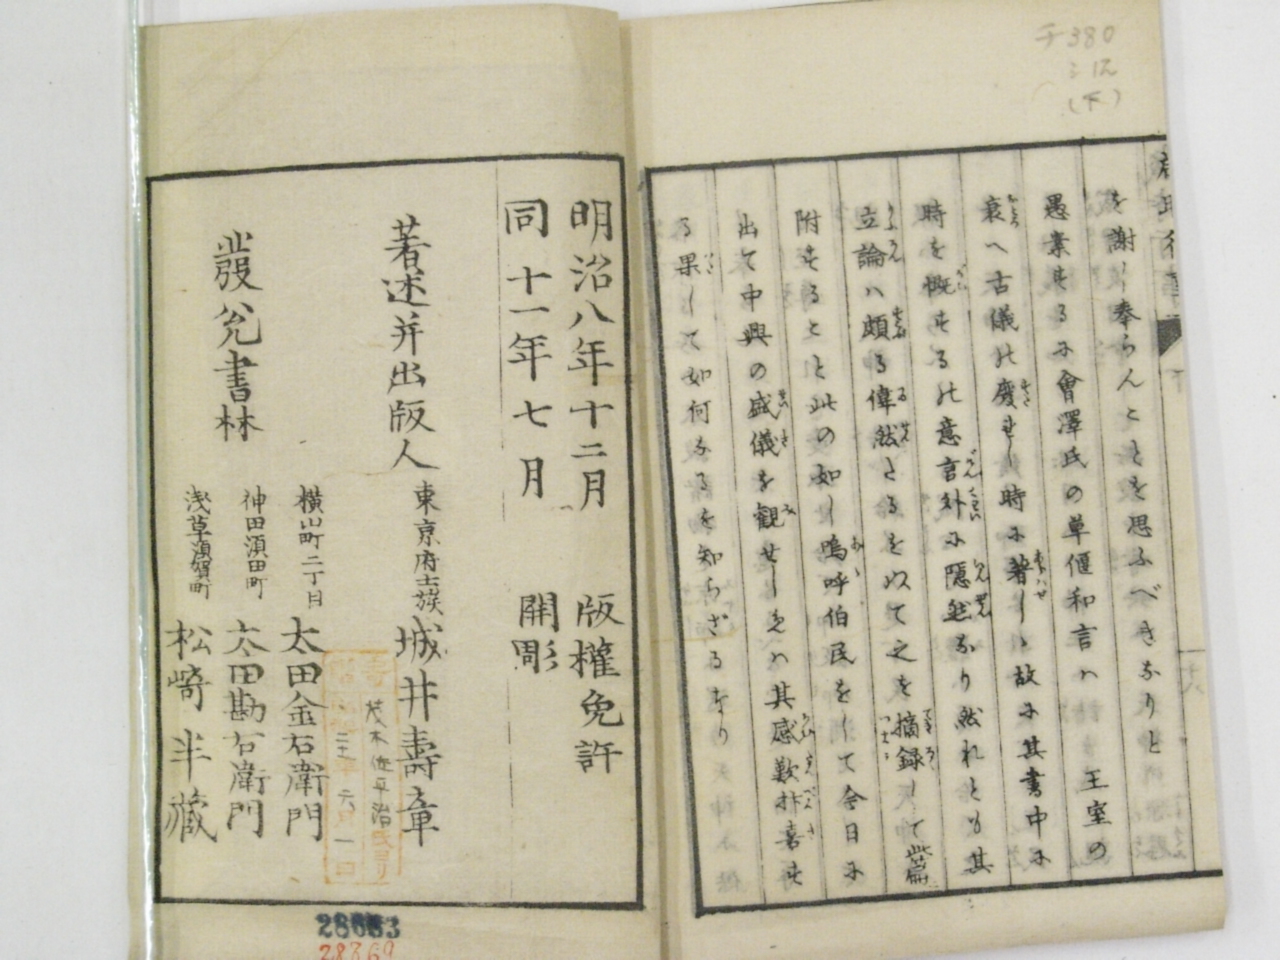 を謝し奉らんことを思ふべきなりと
愚案するに會澤氏の草偃和言ハ　王室の
衰へ古儀の廢せし時に著しゝ故に其書中に
時を慨するの意言外に隠然なり然れとも其
立論ハ頗る偉然たるを以て之を摘録して此篇
附することと此の如し嗚呼伯民をして今日に
出て中興の盛儀を觀せしめハ其感歎抃喜す
る果して如何なるを知らざるなり
十八
チ380
(下)
明治八年十二月　版權免許
同十一年七月　開彫
著述并出版人　東京府士族　城井壽章
發兌書林
横山町三丁目　太田金右衛門
神田須田町　太田勘右衛門
浅草須賀町　松崎半藏
茂木佐平治氏寄
二十一年六月一日
28369